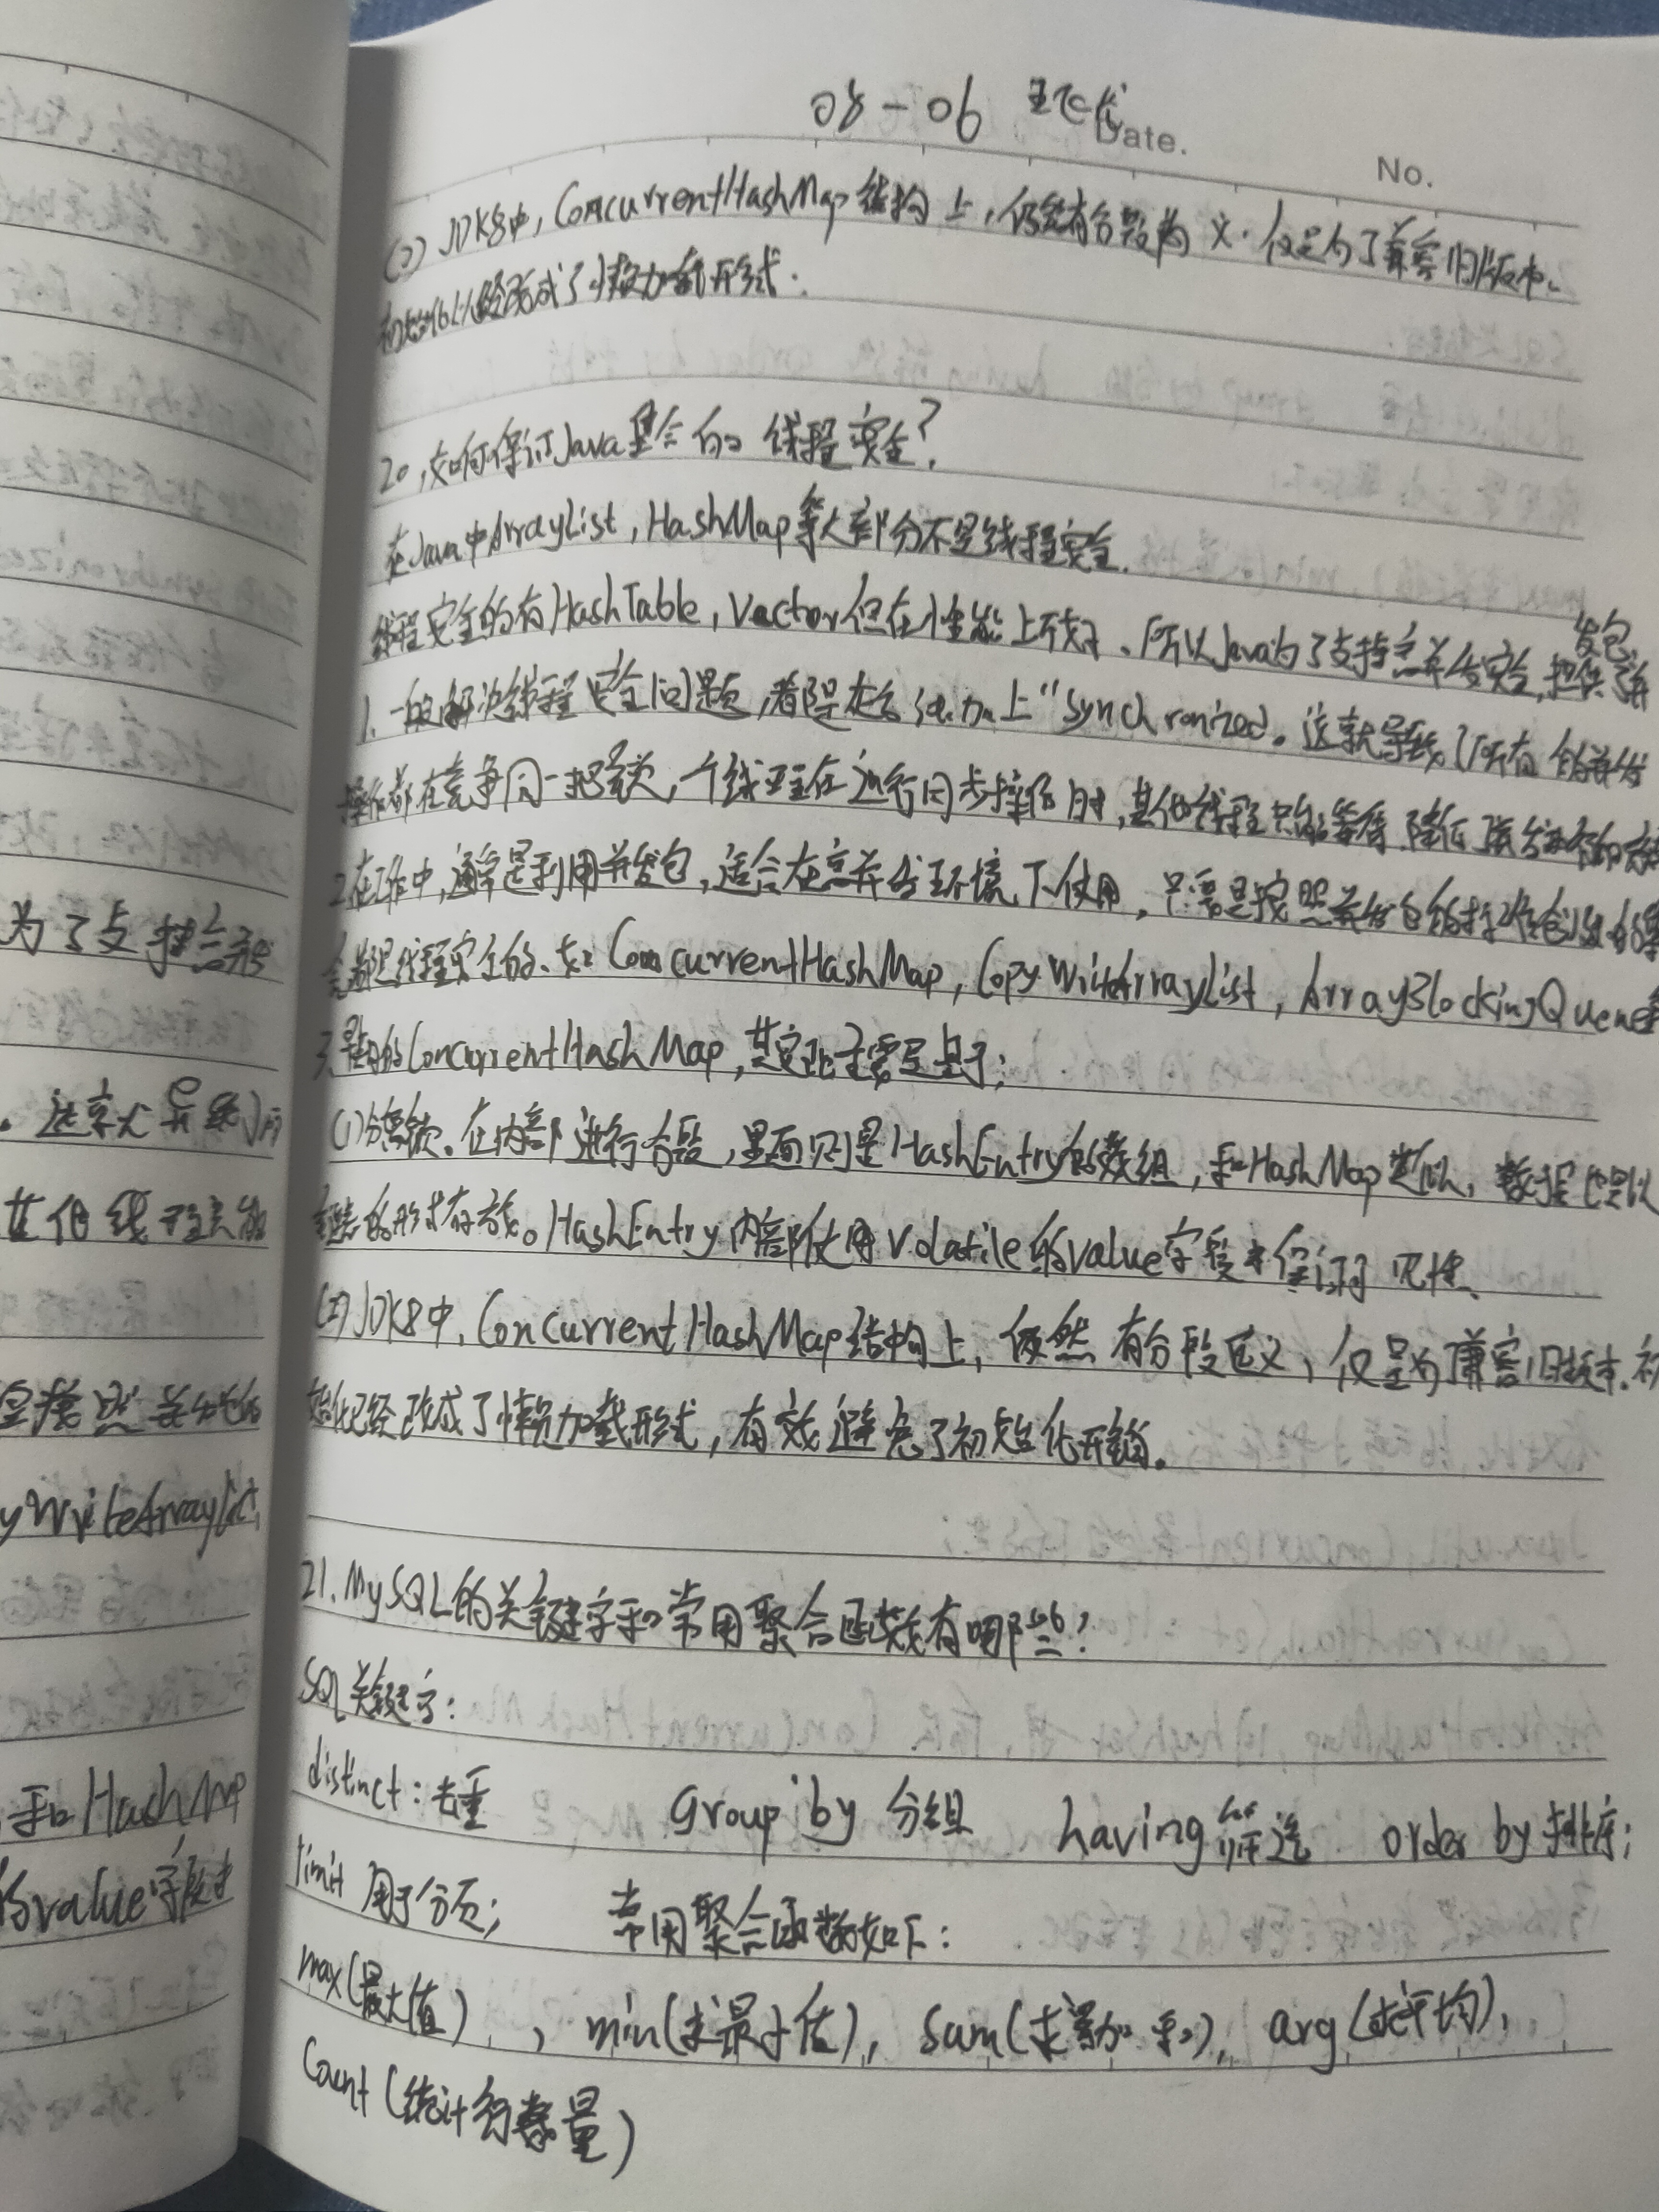 为了支持高并
。这就导致了所
其他线程只能
yWriteArrayList
和HashMap
的value字段来
08-06
Date.
No.
(2) JDK8中, ConcurrentHashMap 结构上, 仍然有分段的 义. 仅是为了兼容旧版本.
初始化已经改成了懒加载形式.
20, 如何保证Java集合的 线程安全?
在Java中ArrayList, HashMap等大部分不是线程安全.
线程安全的有HashTable, Vector但在性能上不好. 所以Java为了支持高并发安全, 提供了并
发包
1. 一般解决线程安全问题, 都是在方法加上“Synchronized。这就导致了所有的并发
操作都在竞争同一把锁, 一个线程在进行同步操作时, 其他线程只能等待, 降低
2.在工作中, 通常是利用并发包, 适合在高并发环境下使用, 只需是按照并发包的标准创建的集
合都是线程安全的. 如 ConcurrentHashMap, CopyWriteArrayList, ArrayBlockingQueue等
3. ConcurrentHashMap, 其实现主要是基于:
(1)分离锁. 在内部进行分段, 里面则是HashEntry的数组, 和HashMap类似, 数据也是以
链表的形式存放。HashEntry内部使用Volatile的value字段来保证可见性.
(2)JDK8中, ConcurrentHashMap结构上, 仍然 有分段定义, 仅是为兼容旧版本. 初
始化已经改成了懒加载形式, 有效避免了初始化开销。
21. MySQL的关键字和常用聚合函数有哪些?
SQL关键字:
distinct: 去重 Group by 分组 having 筛选 order by 排序;
limit 用于分页; 常用聚合函数如下:
max(最大值) , min(求最小值), Sum(求累加和), arg(求平均),
Count (统计行数量)